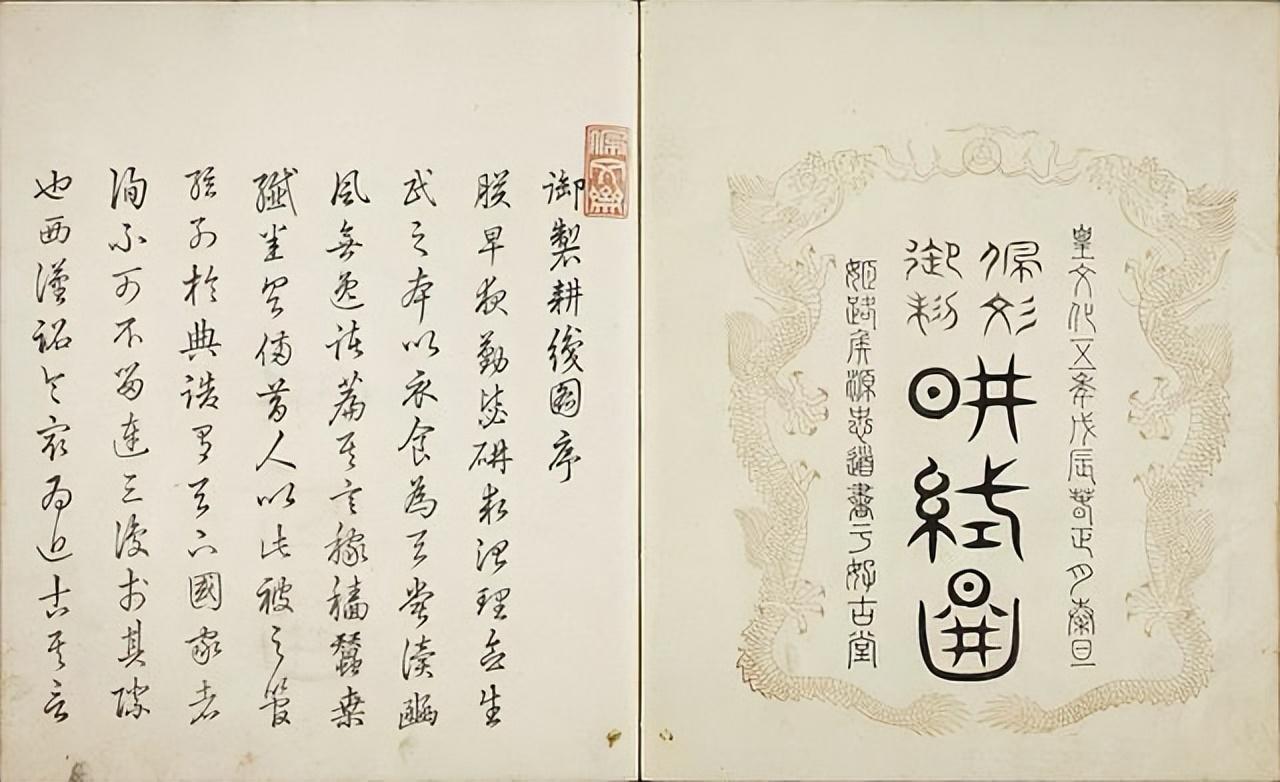 皇文化五年戊辰春正月穀旦
佩文
御制
耕織圖
姬路侯源忠道書于好古堂
佩文齋
御製耕織圖序
朕早夜勤毖研求治理念生
民之本以衣食為天嘗讀豳
風無逸諸篇其言稼穡蠶桑
纖悉具備昔人以此被之管
絃列於典誥有天下國家者
洵不可不留連三復於其際
也西漢詔令最為近古其言